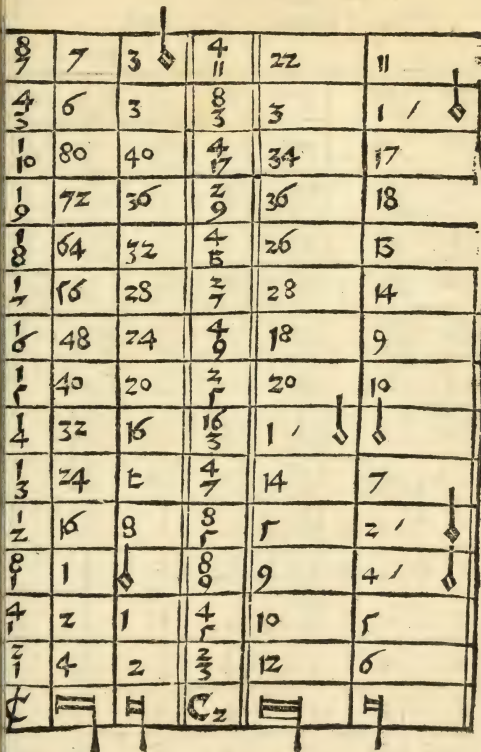 8/7 7 3 4/11 22 11
4/3 6 3 8/3 3 1 /
1/10 80 40 4/17 34 17
1/9 72 36 2/9 36 18
1/8 64 32 4/13 26 13
1/7 56 28 2/7 28 14
1/6 48 24 4/9 18 9
1/5 40 20 2/5 20 10
1/4 32 16 16/3 1 /
1/3 24 12 4/7 14 7
1/2 16 8 8/5 5 2 /
8/1 1 8/9 9 4 /
4/1 2 1 4/5 10 5
2/1 4 2 2/3 12 6
₵ C2